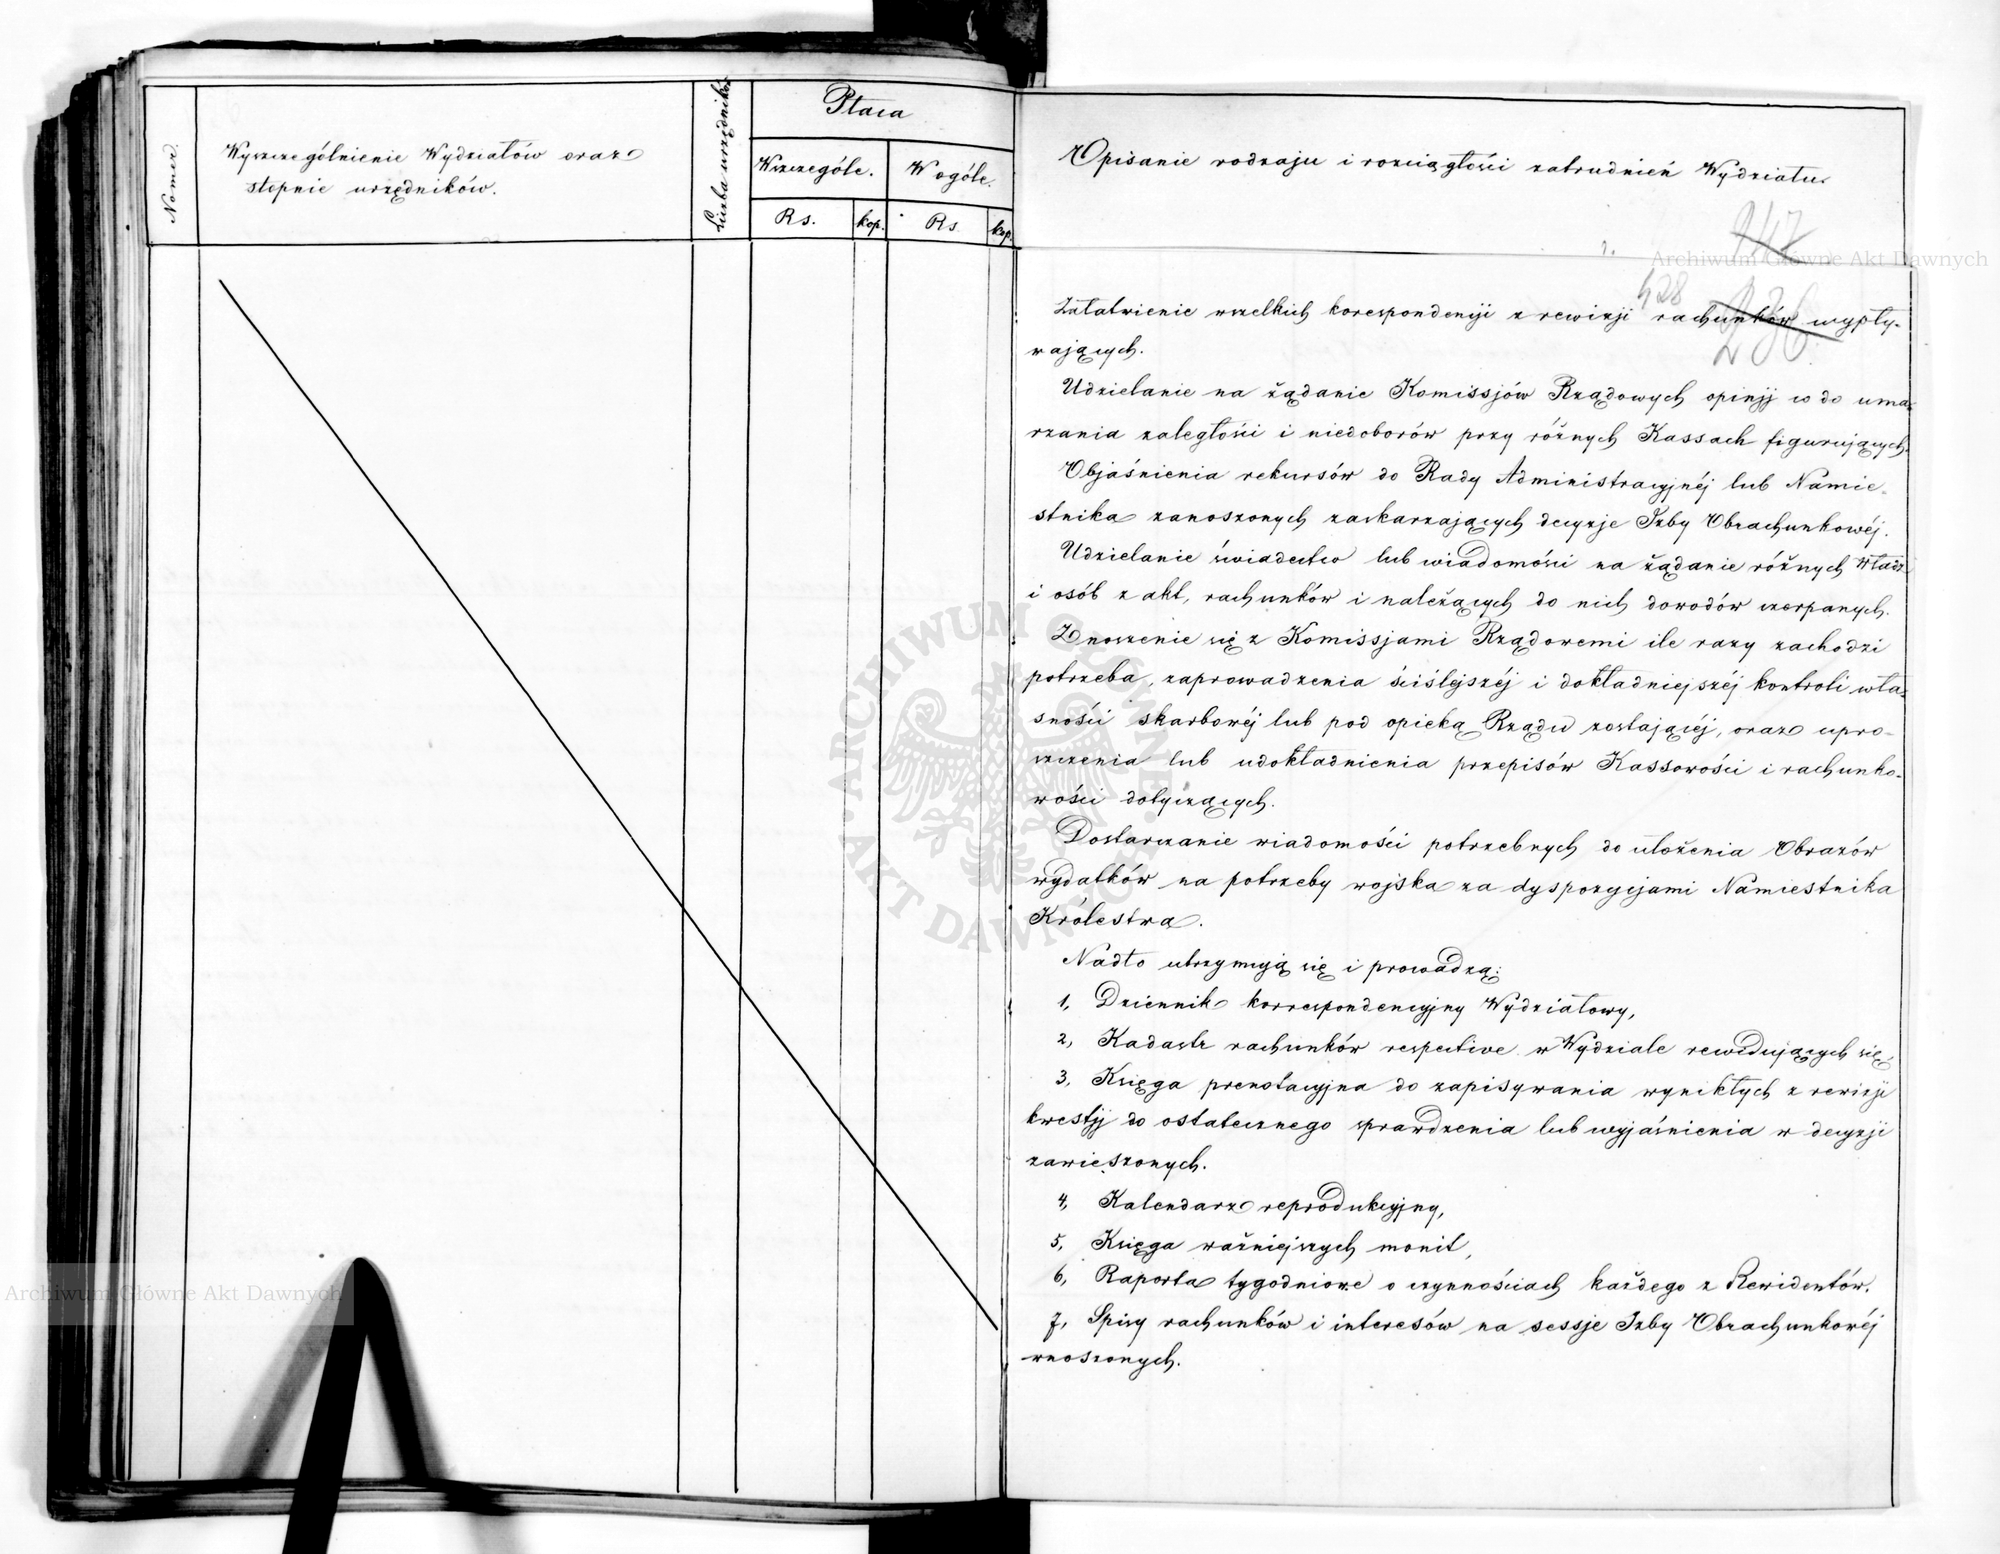 Nomer.
Wyszczególnienie Wydziałów oraz
stopnie urzędników.
Liczba urzędników
Płaca
Wszczególe.
Wogóle.
Rs.
kop.
Rs.
kop.
Opisanie rodzaju i rozciągłości zatrudnień Wydziału.
247
428
236
Załatwienie wszelkich korespondencji z rewizji rachunków wypły-
wających.
Udzielanie na żądanie Komissjów Rządowych opinji co do uma-
rzania zaległości i niedoborów przy różnych Kassach figurujących.
Objaśnienia rekursów do Rady Administracyjnéj lub Namie-
stnika zanoszonych zaskarzających decyzje Izby Obrachunkowéj.
Udzielanie świadectw lub wiadomości na żądanie różnych Władz
i osób z akt, rachunków i należących do nich dowodów czerpanych.
Znoszenie się z Komissjami Rządowemi ile razy zachodzi
potrzeba, zaprowadzenia ściślejszéj i dokładniejszéj kontroli wła-
sności skarbowéj lub pod opieką Rządu zostającéj, oraz upro-
szczenia lub udokładnienia przepisów Kassowości i rachunko-
wości dotyczących.
Dostarczanie wiadomości potrzebnych do ułożenia Obrazów
wydatków na potrzeby wojska za dyspozycjami Namiestnika
Królestwa.
Nadto utrzymują się i prowadzą:
1, Dziennik korrespondencyjny Wydziałowy,
2, Kadastr rachunków respective w Wydziale rewidujących się,
3, Księga prenotacyjna do zapisywania wynikłych z rewizji
kwestji do ostatecznego sprawdzenia lub wyjaśnienia w decyzji
zawieszonych.
4, Kalendarz reprodukcyjny,
5, Księga ważniejszych monit,
6, Raporta tygodniowe o czynnościach każdego z Rewidentów.
7, Spisy rachunków i interesów na sessje Izby Obrachunkowéj
wnoszonych.
Archiwum Główne Akt Dawnych
Archiwum Główne Akt Dawnych
ARCHIWUM GŁÓWNE AKT DAWNYCH